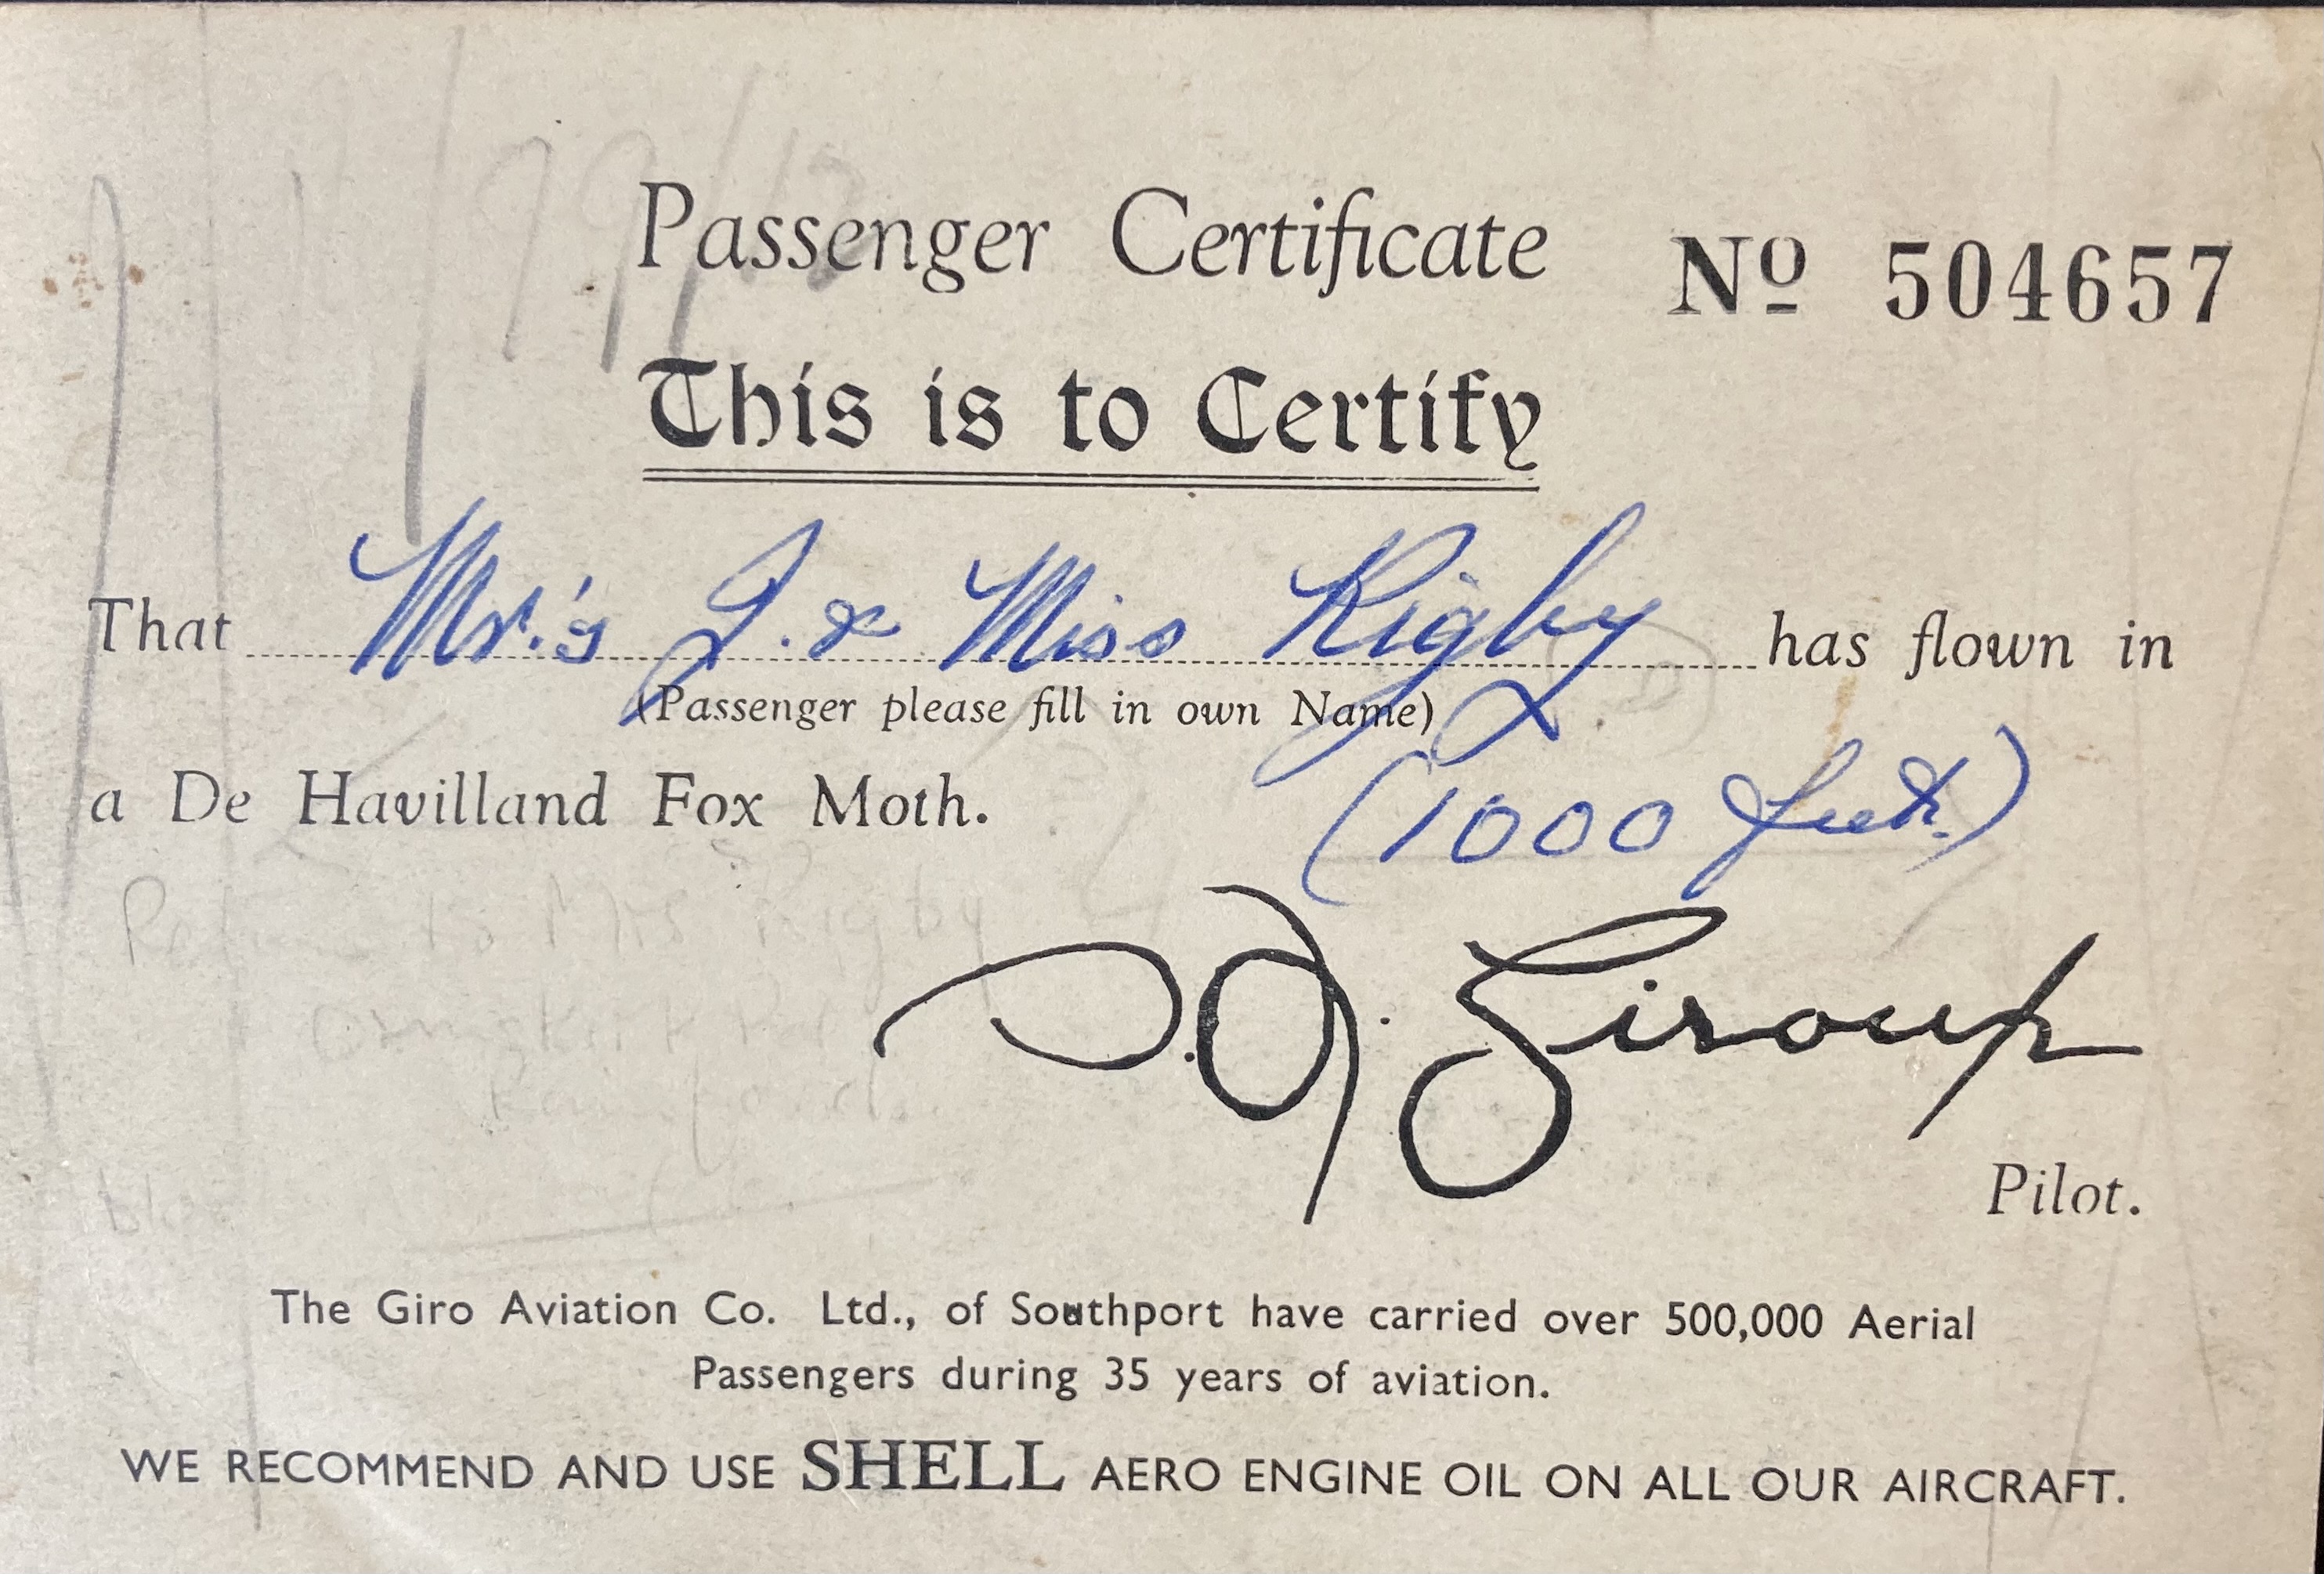 Passenger Certificate Nº 504657
This is to Certify
That Mr.'s J. & Miss Rigby has flown in
(Passenger please fill in own Name)
a De Havilland Fox Moth.
(1000 feet.)
to Mrs Rigby
Giroux
Pilot.
The Giro Aviation Co. Ltd., of Southport have carried over 500,000 Aerial
Passengers during 35 years of aviation.
WE RECOMMEND AND USE SHELL AERO ENGINE OIL ON ALL OUR AIRCRAFT.